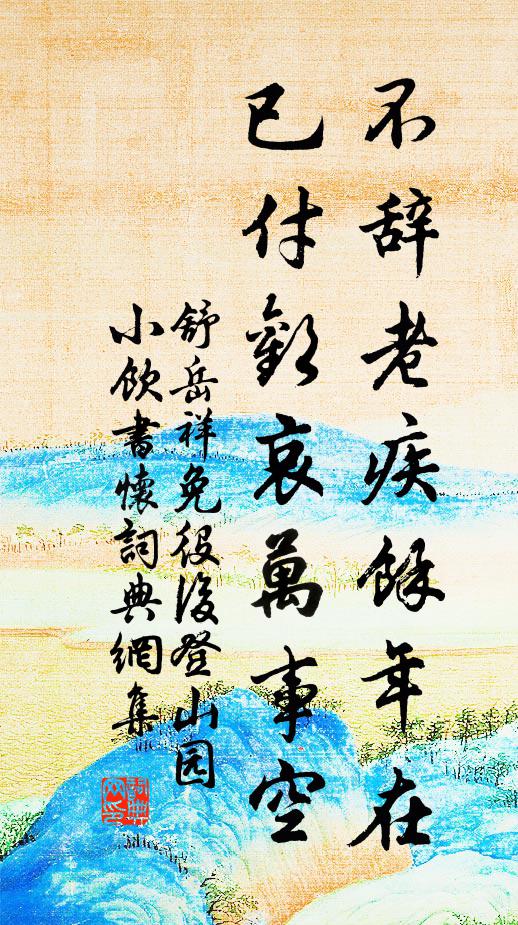 不辞老疾餘年在
已付歡哀萬事空
舒岳祥免役後登山园
小飲書懷詞典網集